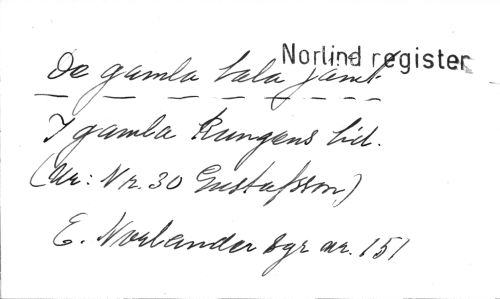 Norlind register
De gamla tala jämt
I gamla Kungens tid.
(Ur: Nr. 30 Gustafsson)
E. Norlander sgr nr. 151